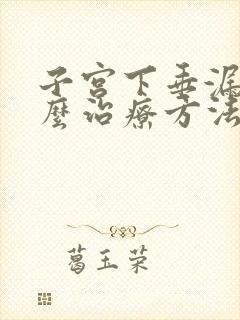 子宫下垂漏
麼治療方法
葛玉荣